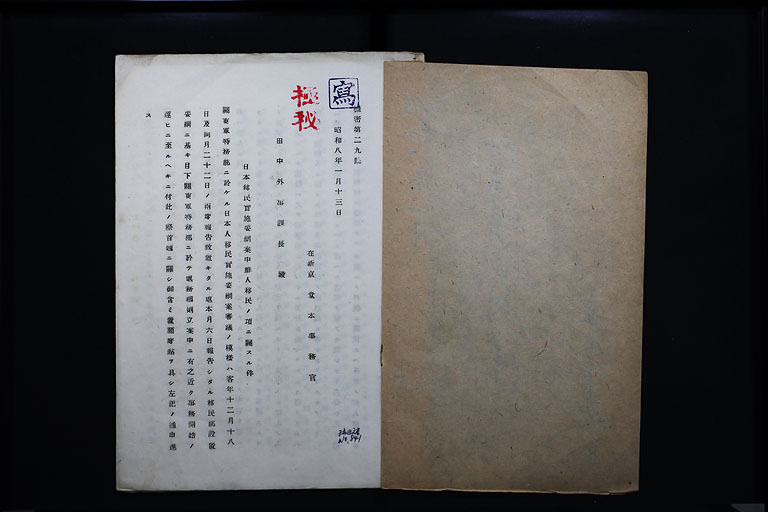 寫
極秘
機密第二九號
昭和八年一月十三日
在新京 堂本事務官
田中外事課長 殿
日本移民實施要綱案中鮮人移民ノ項ニ關スル件
關東軍特務部ニ於ケル日本人移民實施要綱案審議ノ模樣ハ客年十二月十八
日及同月二十二日ノ兩度報告致置キタル處本月六日報告シタル移民部設置
要綱ニ基キ目下關東軍特務部ニ於テ處務細則立案中ニ有之近ク事務開始ノ
運ヒニ至ルヘキニ付此ノ際首題ニ關シ御含ミ置願度點ヲ具シ左記ノ通申進
ス